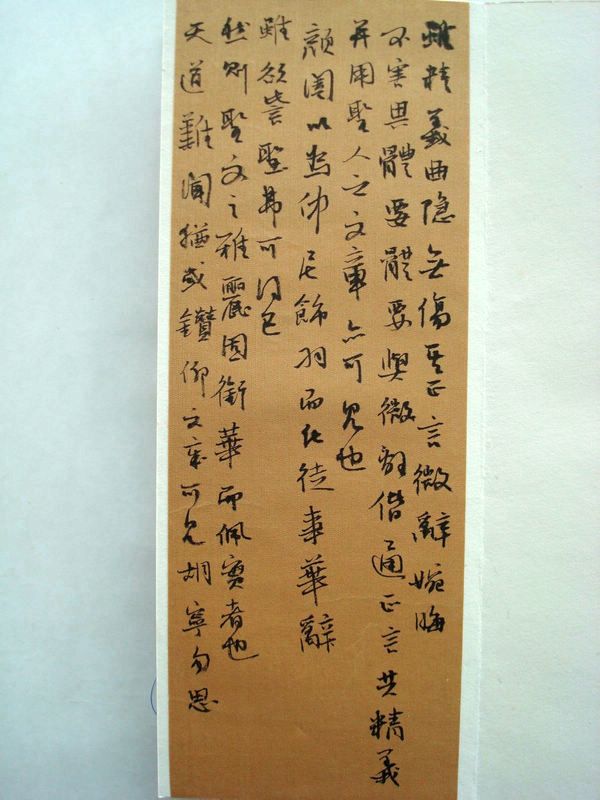 雖精義曲隱無傷其正言微辭婉晦
不害其體要體要與微辭偕通正言共精義
并用聖人之文章亦可見也
顏闔以為仲尼飾羽而畫徒事華辭
雖欲訾聖弗可得已
然則聖文之雅麗固銜華而佩實者也
天道難聞猶或鑽仰文章可見胡寧勿思